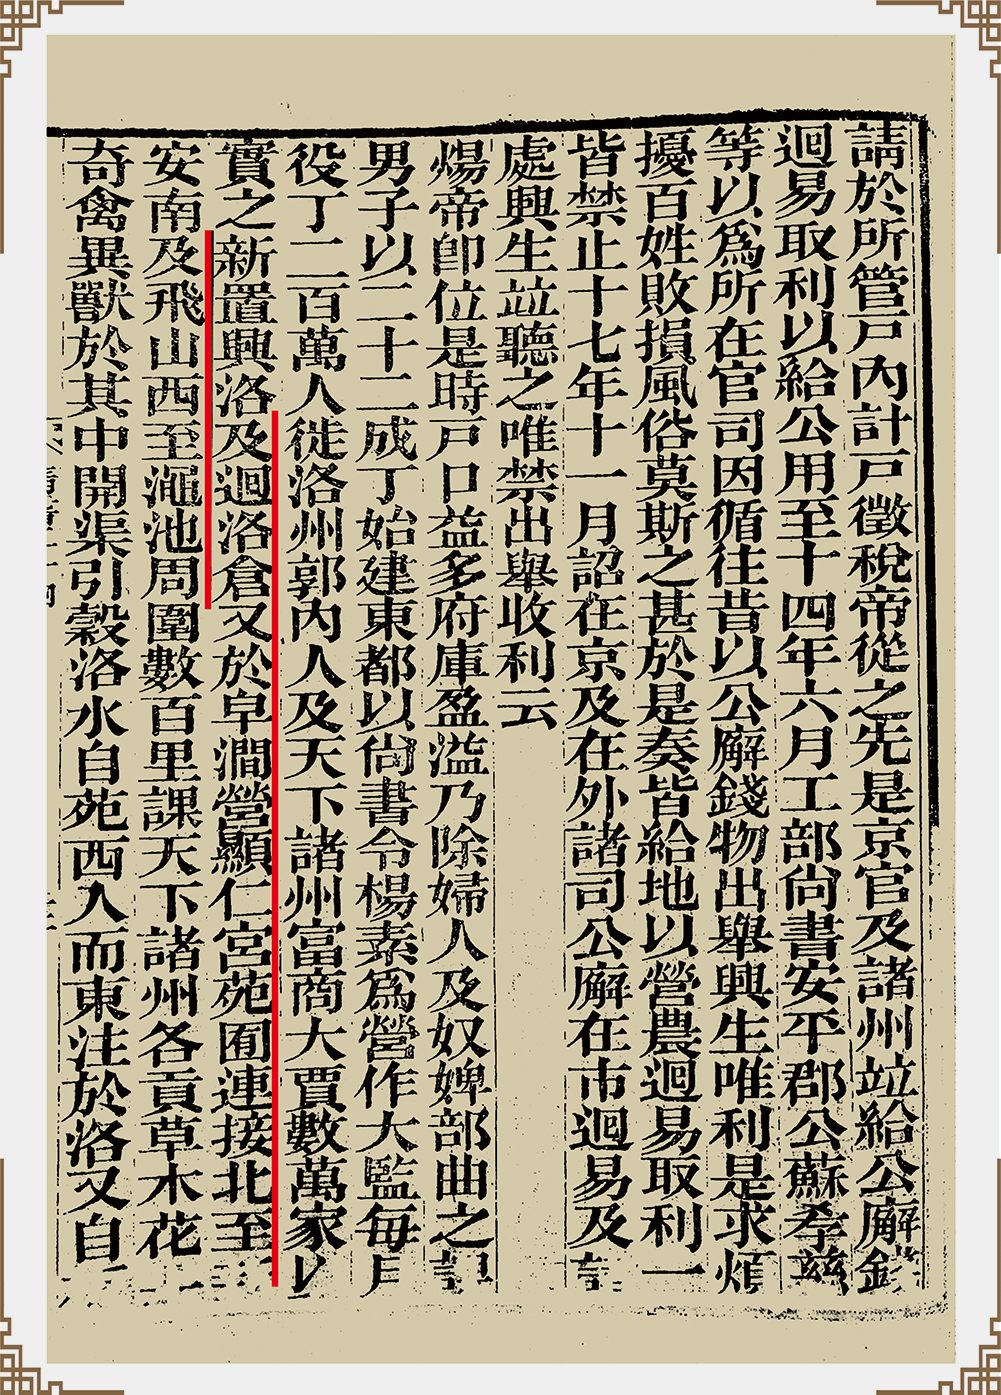 請於所管戸內計戸徵稅帝從之先是京官及諸州竝給公廨錢
迴易取利以給公用至十四年六月工部尙書安平郡公蘇孝慈
等以爲所在官司因循往昔以公廨錢物出舉興生唯利是求煩
擾百姓敗損風俗莫斯之甚於是奏皆給地以營農迴易取利一
皆禁止十七年十一月詔在京及在外諸司公廨在市迴易及
處興生竝聽之唯禁出舉收利云
煬帝卽位是時戸口益多府庫盈溢乃除婦人及奴婢部曲之
男子以二十二成丁始建東都以尙書令楊素爲營作大監每月
役丁二百萬人徙洛州郭內人及天下諸州富商大賈數萬家以
實之新置興洛及迴洛倉又於皁澗營顯仁宮苑囿連接北至
安南及飛山西至澠池周圍數百里課天下諸州各貢草木花
奇禽異獸於其中開渠引穀洛水自苑西入而東注於洛又自